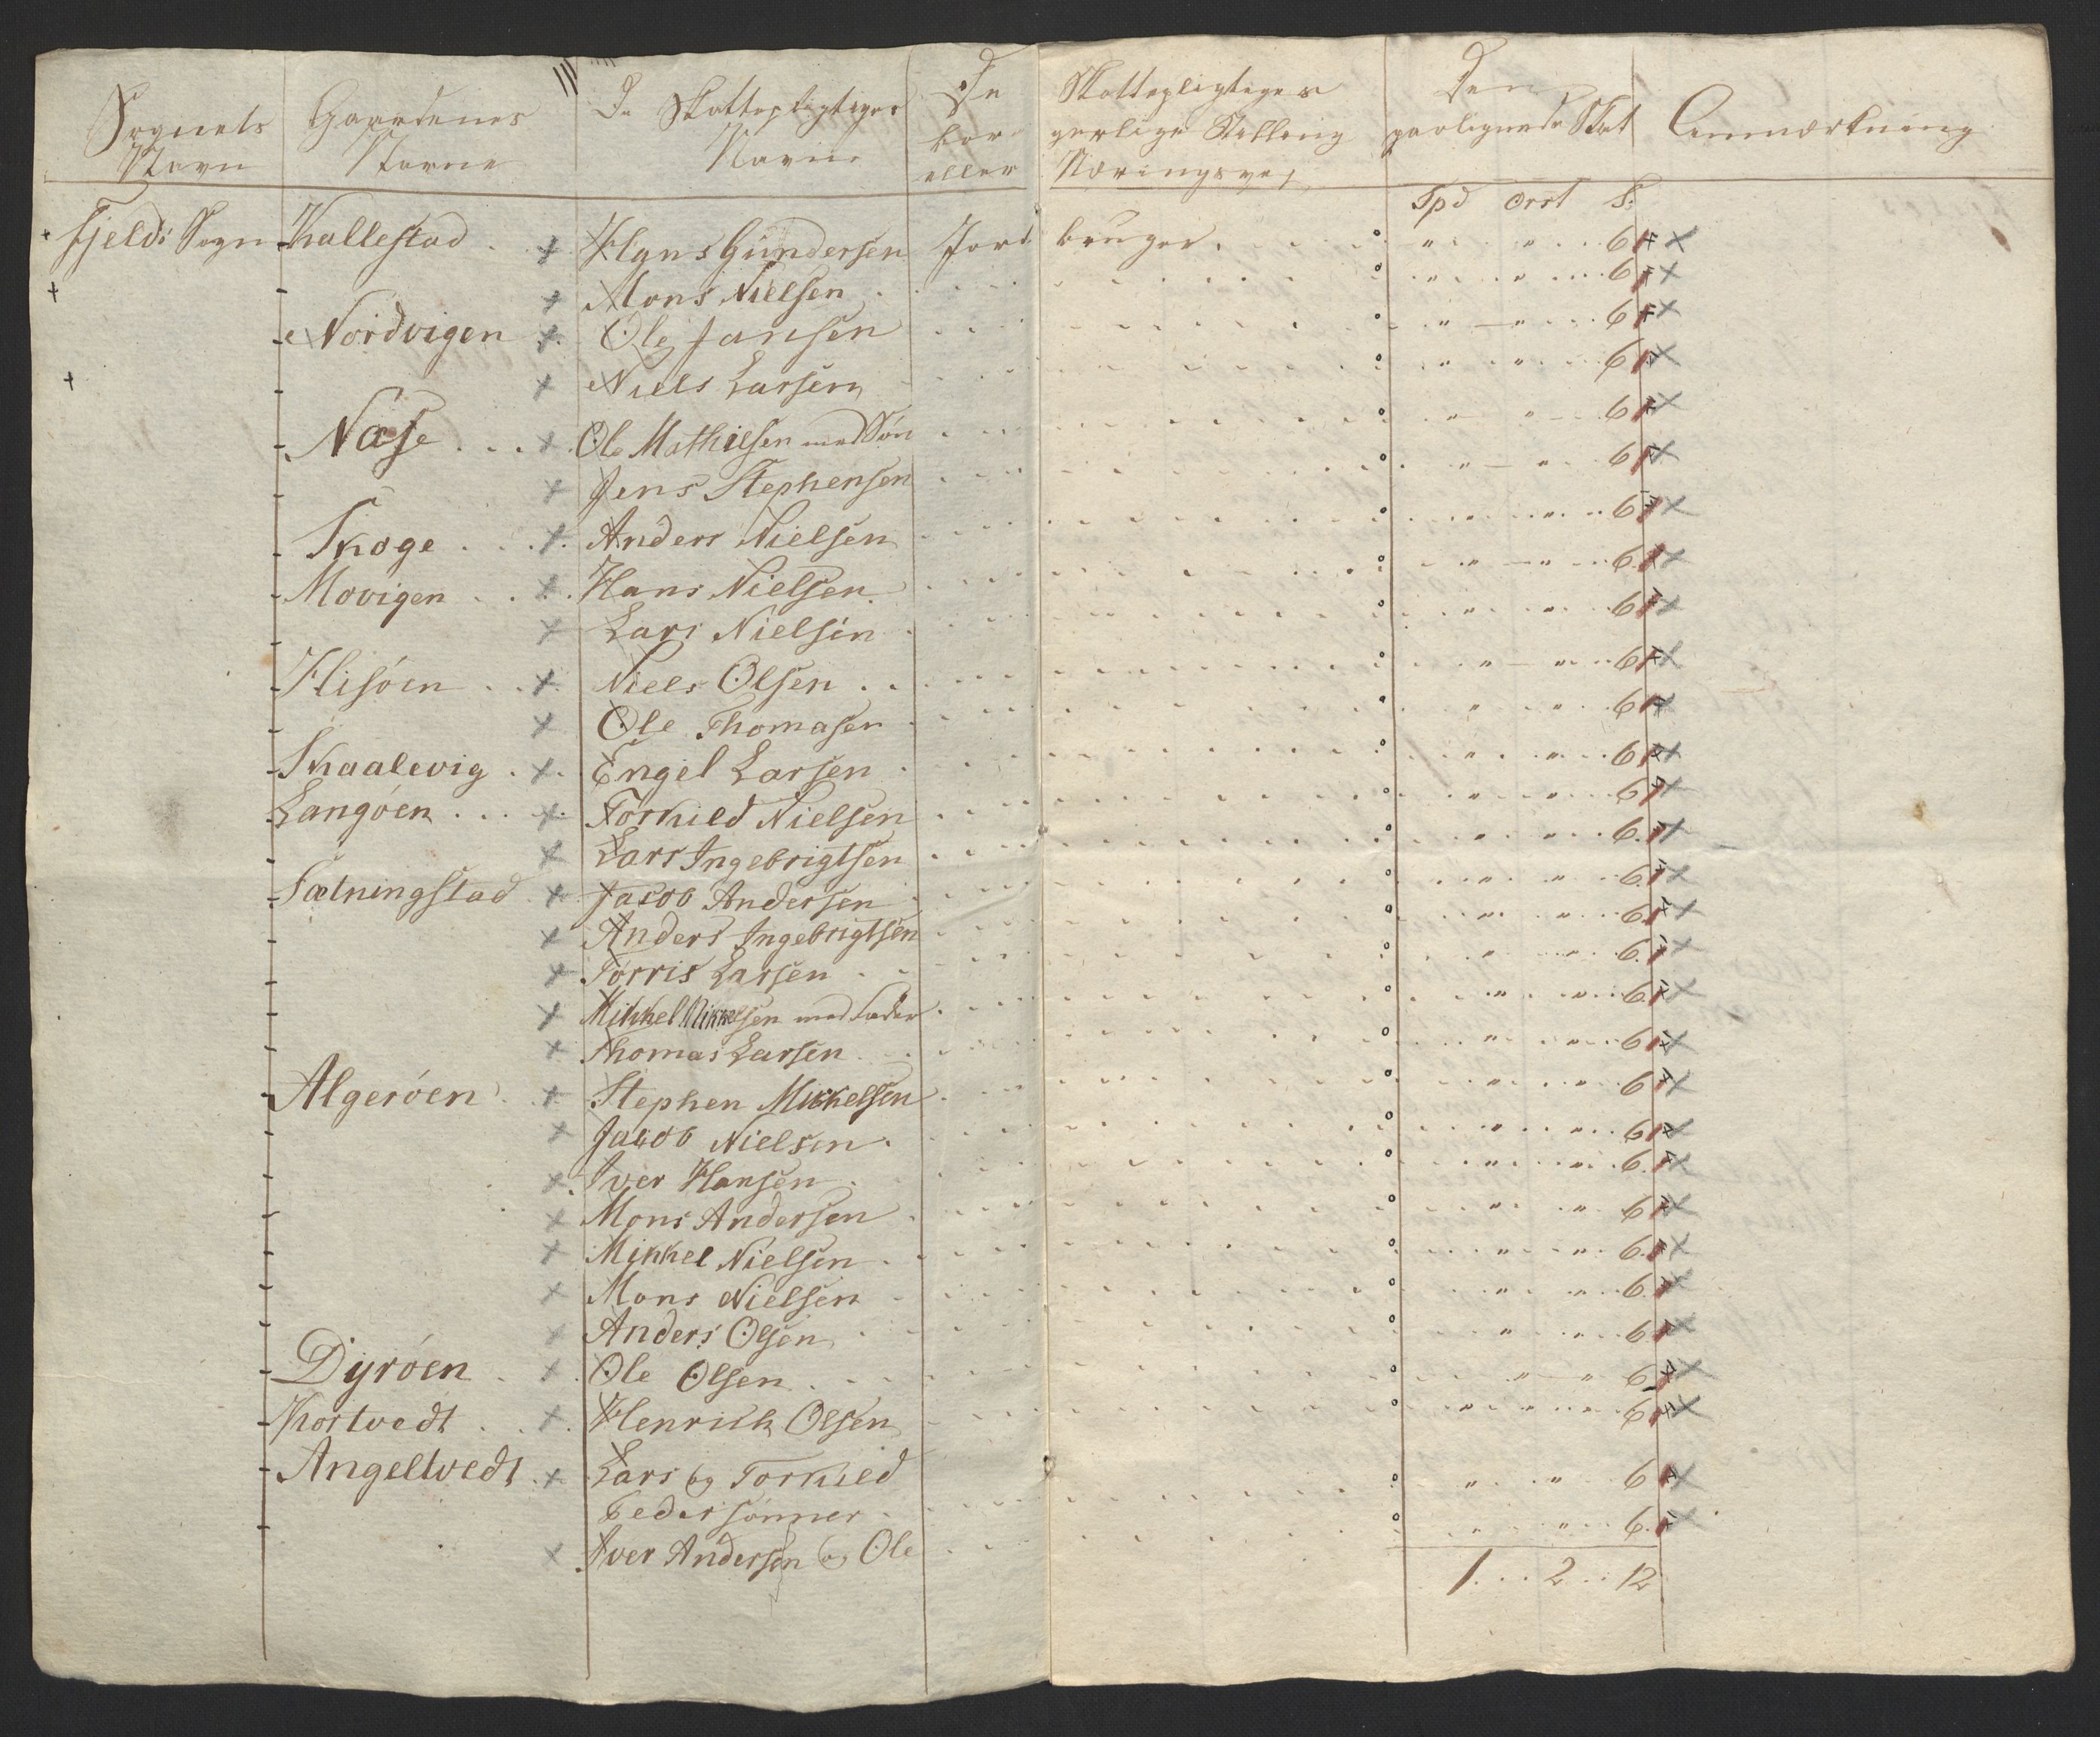 Sognets Navn | Gaardenes Navne | De Skattepligtiges Navne | De Skattepligtiges
bor- gerlige Stilling
eller Næringsvej | Den paalignede Skat | Anmærkning
Spd Ort S:
Fjelds Sogn Kallestad . Hans Gundersen Jord bruger. " " 6
Mons Nielsen " " 6
Nordvigen Ole Jansen " " 6
Niels Larsen " " 6
Næse Ole Mathiesen med Søn " " 6
Jens Stephensen " " 6
Skoge Anders Nielsen " " 6
Movigen Hans Nielsen " " 6
Lars Nielsen " " 6
Hisøen Niels Olsen " " 6
Ole Thomasen " " 6
Skaalevig Engel Larsen " " 6
Langøen Torkild Nielsen " " 6
Lars Ingebrigtsen " " 6
Tælningstad Jacob Andersen " " 6
Anders Ingebrigtsen " " 6
Torris Larsen " " 6
Mikkel Mikkelsen med Fader " " 6
Thomas Larsen " " 6
Algerøen Stephen Mikkelsen " " 6
Jacob Nielsen " " 6
Iver Hansen " " 6
Mons Andersen " " 6
Mikkel Nielsen " " 6
Mons Nielsen " " 6
Anders Olsen " " 6
Dyrøen Ole Olsen " " 6
Kortvedt Henrich Olsen " " 6
Angeltvedt Lars og Torkild
Pedersønner " " 6
Iver Andersen og Ole " " 6
1 2 12